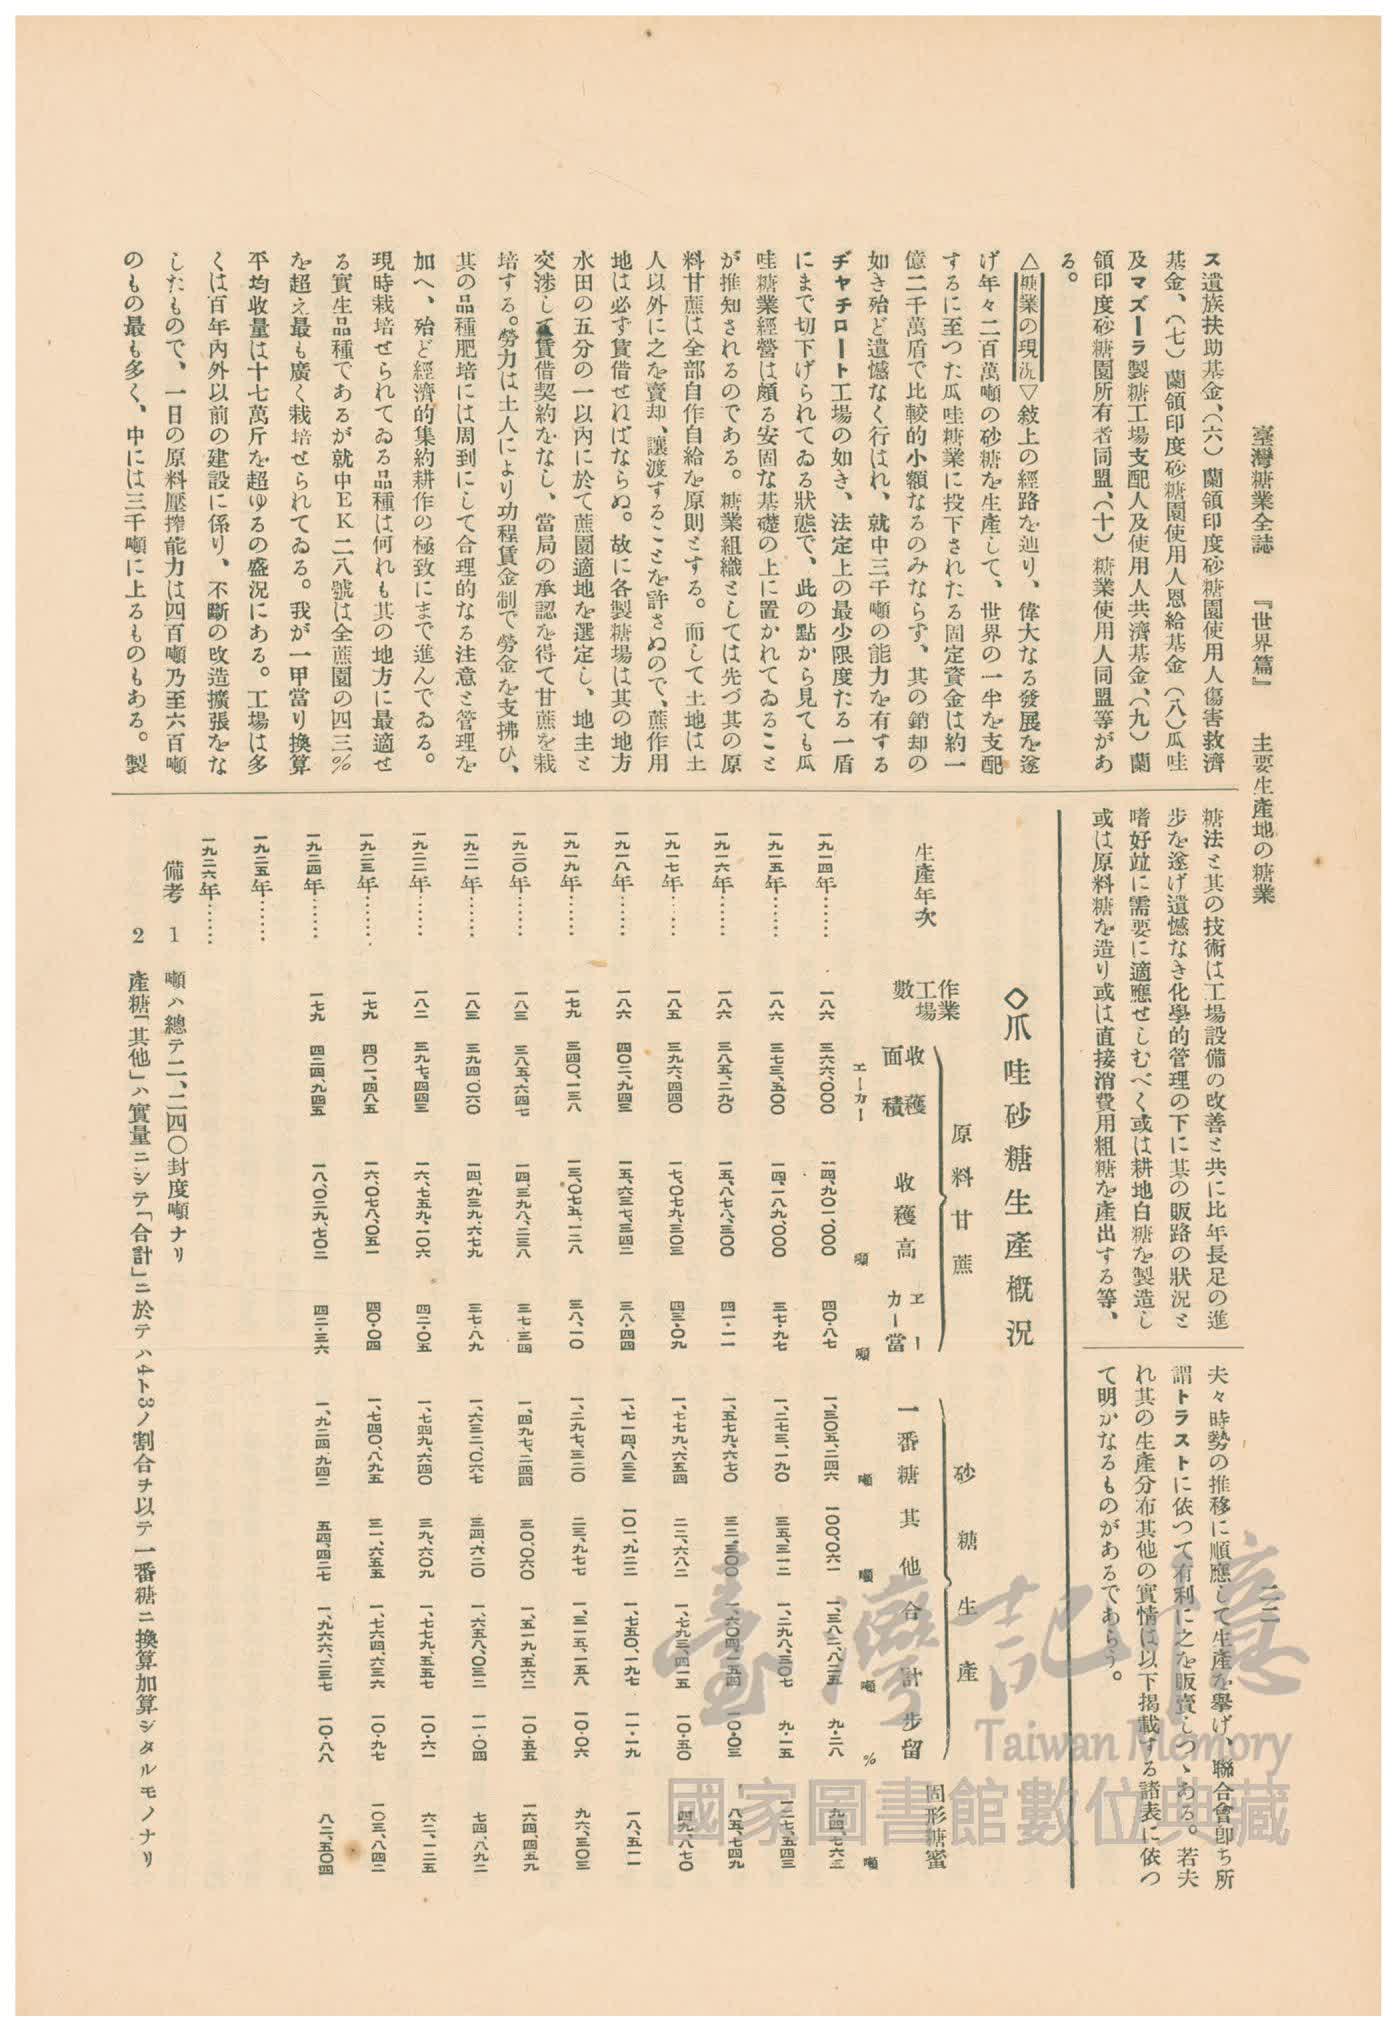 臺灣糖業全誌　『世界篇』　主要生產地の糖業
二二
ス遺族扶助基金、(六)蘭領印度砂糖園使用人傷害救濟
基金、(七)蘭領印度砂糖園使用人恩給基金(八)瓜哇
及マズーラ製糖工場支配人及使用人共濟基金、(九)蘭
領印度砂糖園所有者同盟、(十)糖業使用人同盟等があ
る。
△糖業の現況▽敘上の經路を辿り、偉大なる發展を遂
げ年々二百萬噸の砂糖を生產して、世界の一半を支配
するに至つた瓜哇糖業に投下されたる固定資金は約一
億二千萬盾で比較的小額なるのみならず、其の銷却の
如き殆ど遺憾なく行はれ、就中三千噸の能力を有する
ヂヤチロート工場の如き、法定上の最少限度たる一盾
にまで切下げられてゐる狀態で、此の點から見ても瓜
哇糖業經營は頗る安固な基礎の上に置かれてゐること
が推知されるのである。糖業組織としては先づ其の原
料甘蔗は全部自作自給を原則とする。而して土地は土
人以外に之を賣却、讓渡することを許さぬので、蔗作用
地は必ず賃借せねばならぬ。故に各製糖場は其の地方
水田の五分の一以內に於て蔗園適地を選定し、地主と
交涉して賃借契約をなし、當局の承認を得て甘蔗を栽
培する。勞力は土人により功程賃金制で勞金を支拂ひ、
其の品種肥培には周到にして合理的なる注意と管理を
加へ、殆ど經濟的集約耕作の極致にまで進んでゐる。
現時栽培せられてゐる品種は何れも其の地方に最適せ
る實生品種であるが就中EK二八號は全蔗園の四三%
を超え最も廣く栽培せられてゐる。我が一甲當り換算
平均收量は十七萬斤を超ゆるの盛況にある。工場は多
くは百年內外以前の建設に係り、不斷の改造擴張をな
したもので、一日の原料壓搾能力は四百噸乃至六百噸
のもの最も多く、中には三千噸に上るものもある。製
糖法と其の技術は工場設備の改善と共に比年長足の進
步を遂げ遺憾なき化學的管理の下に其の販路の狀況と
嗜好竝に需要に適應せしむべく或は耕地白糖を製造し
或は原料糖を造り或は直接消費用粗糖を產出する等、
夫々時勢の推移に順應して生產を擧げ、聯合會卽ち所
謂トラストに依つて有利に之を販賣しつゝある。若夫
れ其の生產分布其他の實情は以下揭載する諸表に依つ
て明かなるものがあるであらう。
◇爪哇砂糖生產槪況
生產年次　作業工場數　原料甘蔗　砂糖生產　固形糖蜜
收穫面積　收穫高　エーカー當　一番糖　其他　合計　步留
エーカー　噸　噸　噸　噸　噸　%　噸
一九一四年……　一八六　三六六、〇〇〇　一四、九〇一、〇〇〇　四〇・八七　一、三〇五、二四六　一〇〇、〇六一　一、三八二、八二五　九・二八　九四、七六三
一九一五年……　一八六　三七三、五〇〇　一四、一八九、〇〇〇　三七・九七　一、二七三、一九〇　三五、三一二　一、二九八、三〇七　九・一五　一二七、五四三
一九一六年……　一八六　三八五、二九〇　一五、八七八、三〇〇　四一・一一　一、五七九、六七〇　三二、三〇〇　一、六〇四、一五四　一〇・〇三　八五、七四九
一九一七年……　一八五　三九六、四四〇　一七、〇七九、三〇三　四三・〇九　一、七七九、六五四　二二、六八二　一、七九三、四一五　一〇・五〇　四九、八七〇
一九一八年……　一八六　四〇二、九四三　一五、六三七、三四二　三八・四四　一、七一四、八三三　一〇一、九二二　一、七五〇、一九七　一一・一九　一八、五一一
一九一九年……　一七九　三四〇、一三八　一三、〇七五、一二八　三八、一〇　一、二九七、三二〇　二三、九七七　一、三一五、一五八　一〇・〇六　九六、三〇三
一九二〇年……　一八三　三八五、六四七　一四、三九八、二三八　三七・三四　一、四九七、二四四　三〇、〇六〇　一、五一九、五六二　一〇・五五　一六四、四五九
一九二一年……　一八三　三九四、〇六〇　一四、九三九、六七九　三七・八九　一、六三二、〇六七　三四、六二〇　一、六五八、〇三二　一一・〇四　七四、八九二
一九二二年……　一八二　三九七、四四三　一六、七五九、一〇六　四二・〇五　一、七四九、六四〇　三九、六〇九　一、七七九、五五七　一〇・六一　六二、一二五
一九二三年……　一七九　四〇一、四八五　一六、〇七八、〇五一　四〇・〇四　一、七四〇、八九五　三一、六五五　一、七六四、六三六　一〇・九七　一〇三、八四二
一九二四年……　一七九　四二四、九四五　一八、〇二九、七〇二　四二・三六　一、九二四、九四二　五四、四二七　一、九六六、二三七　一〇・八八　八二、五〇四
一九二五年……
一九二六年……
備考　1　噸ハ總テ二、二四〇封度噸ナリ
2　產糖「其他」ハ實量ニシテ「合計」ニ於テハ4ト3ノ割合チ以テ一番糖ニ換算加算シタルモノナリ
臺灣記憶
Taiwan Memory
國家圖書館數位典藏